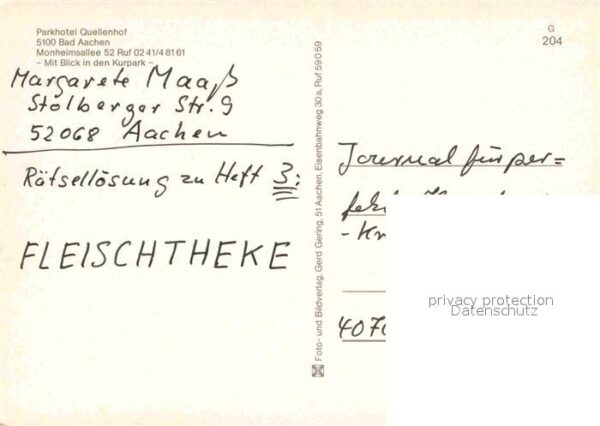 Parkhotel Quellenhof
5100 Bad Aachen
Monheimsallee 52 Ruf 02 41/4 81 61
– Mit Blick in den Kurpark –
Margarete Maaß
Stolberger Str. 9
52068 Aachen
Rätsellösung zu Heft 3:
FLEISCHTHEKE
Foto- und Bildverlag, Gerd Gering, 51 Aachen, Eisenbahnweg 30 a, Ruf 59 0 59
G
204
Journal für per=
privacy protection
Datenschutz